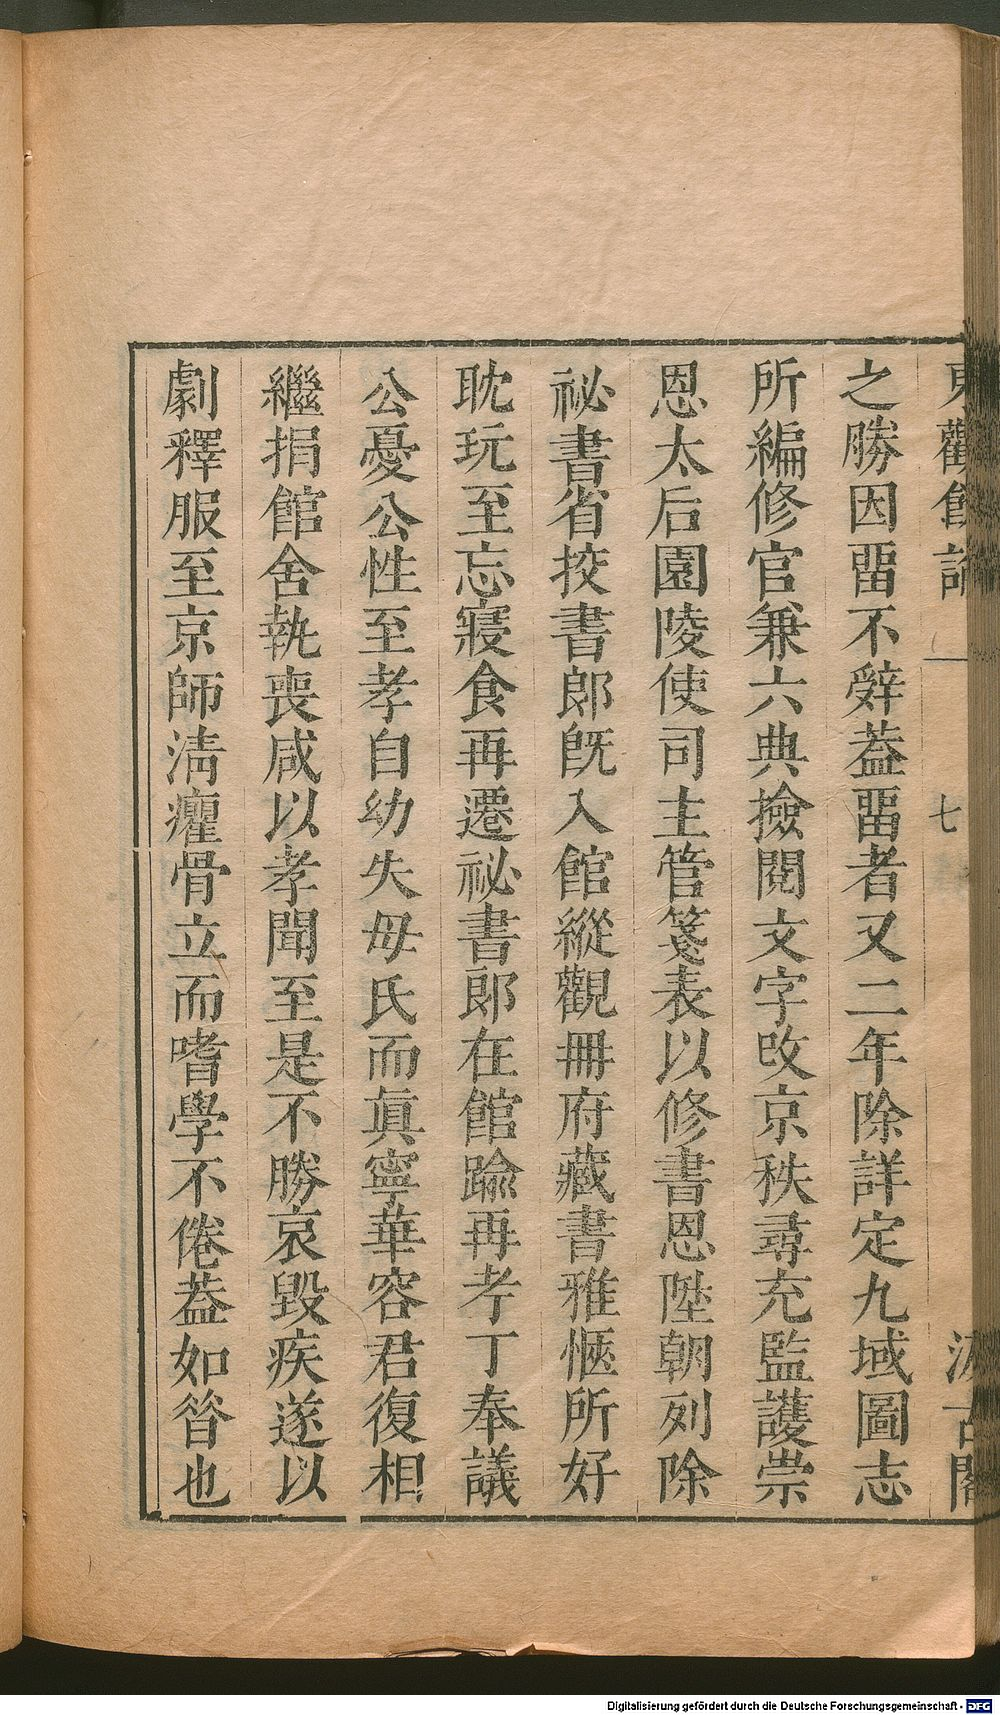 東觀餘論
七
汲古閣
之勝因畱不辤葢畱者又二年除詳定九域圖志
所編修官兼六典撿閱文字攺京秩尋充監護崇
恩太后園陵使司主管箋表以修書恩陞朝列除
祕書省挍書郞旣入館縱觀冊府藏書雅愜所好
耽玩至忘寢食再遷祕書郞在館踰再考丁奉議
公憂公性至孝自幼失母氏而眞寧華容君復相
繼捐館舍執喪咸以孝聞至是不勝哀毀疾遂以
劇釋服至京師淸癯骨立而嗜學不倦葢如昝也
Digitalisierung gefördert durch die Deutsche Forschungsgemeinschaft - DFG